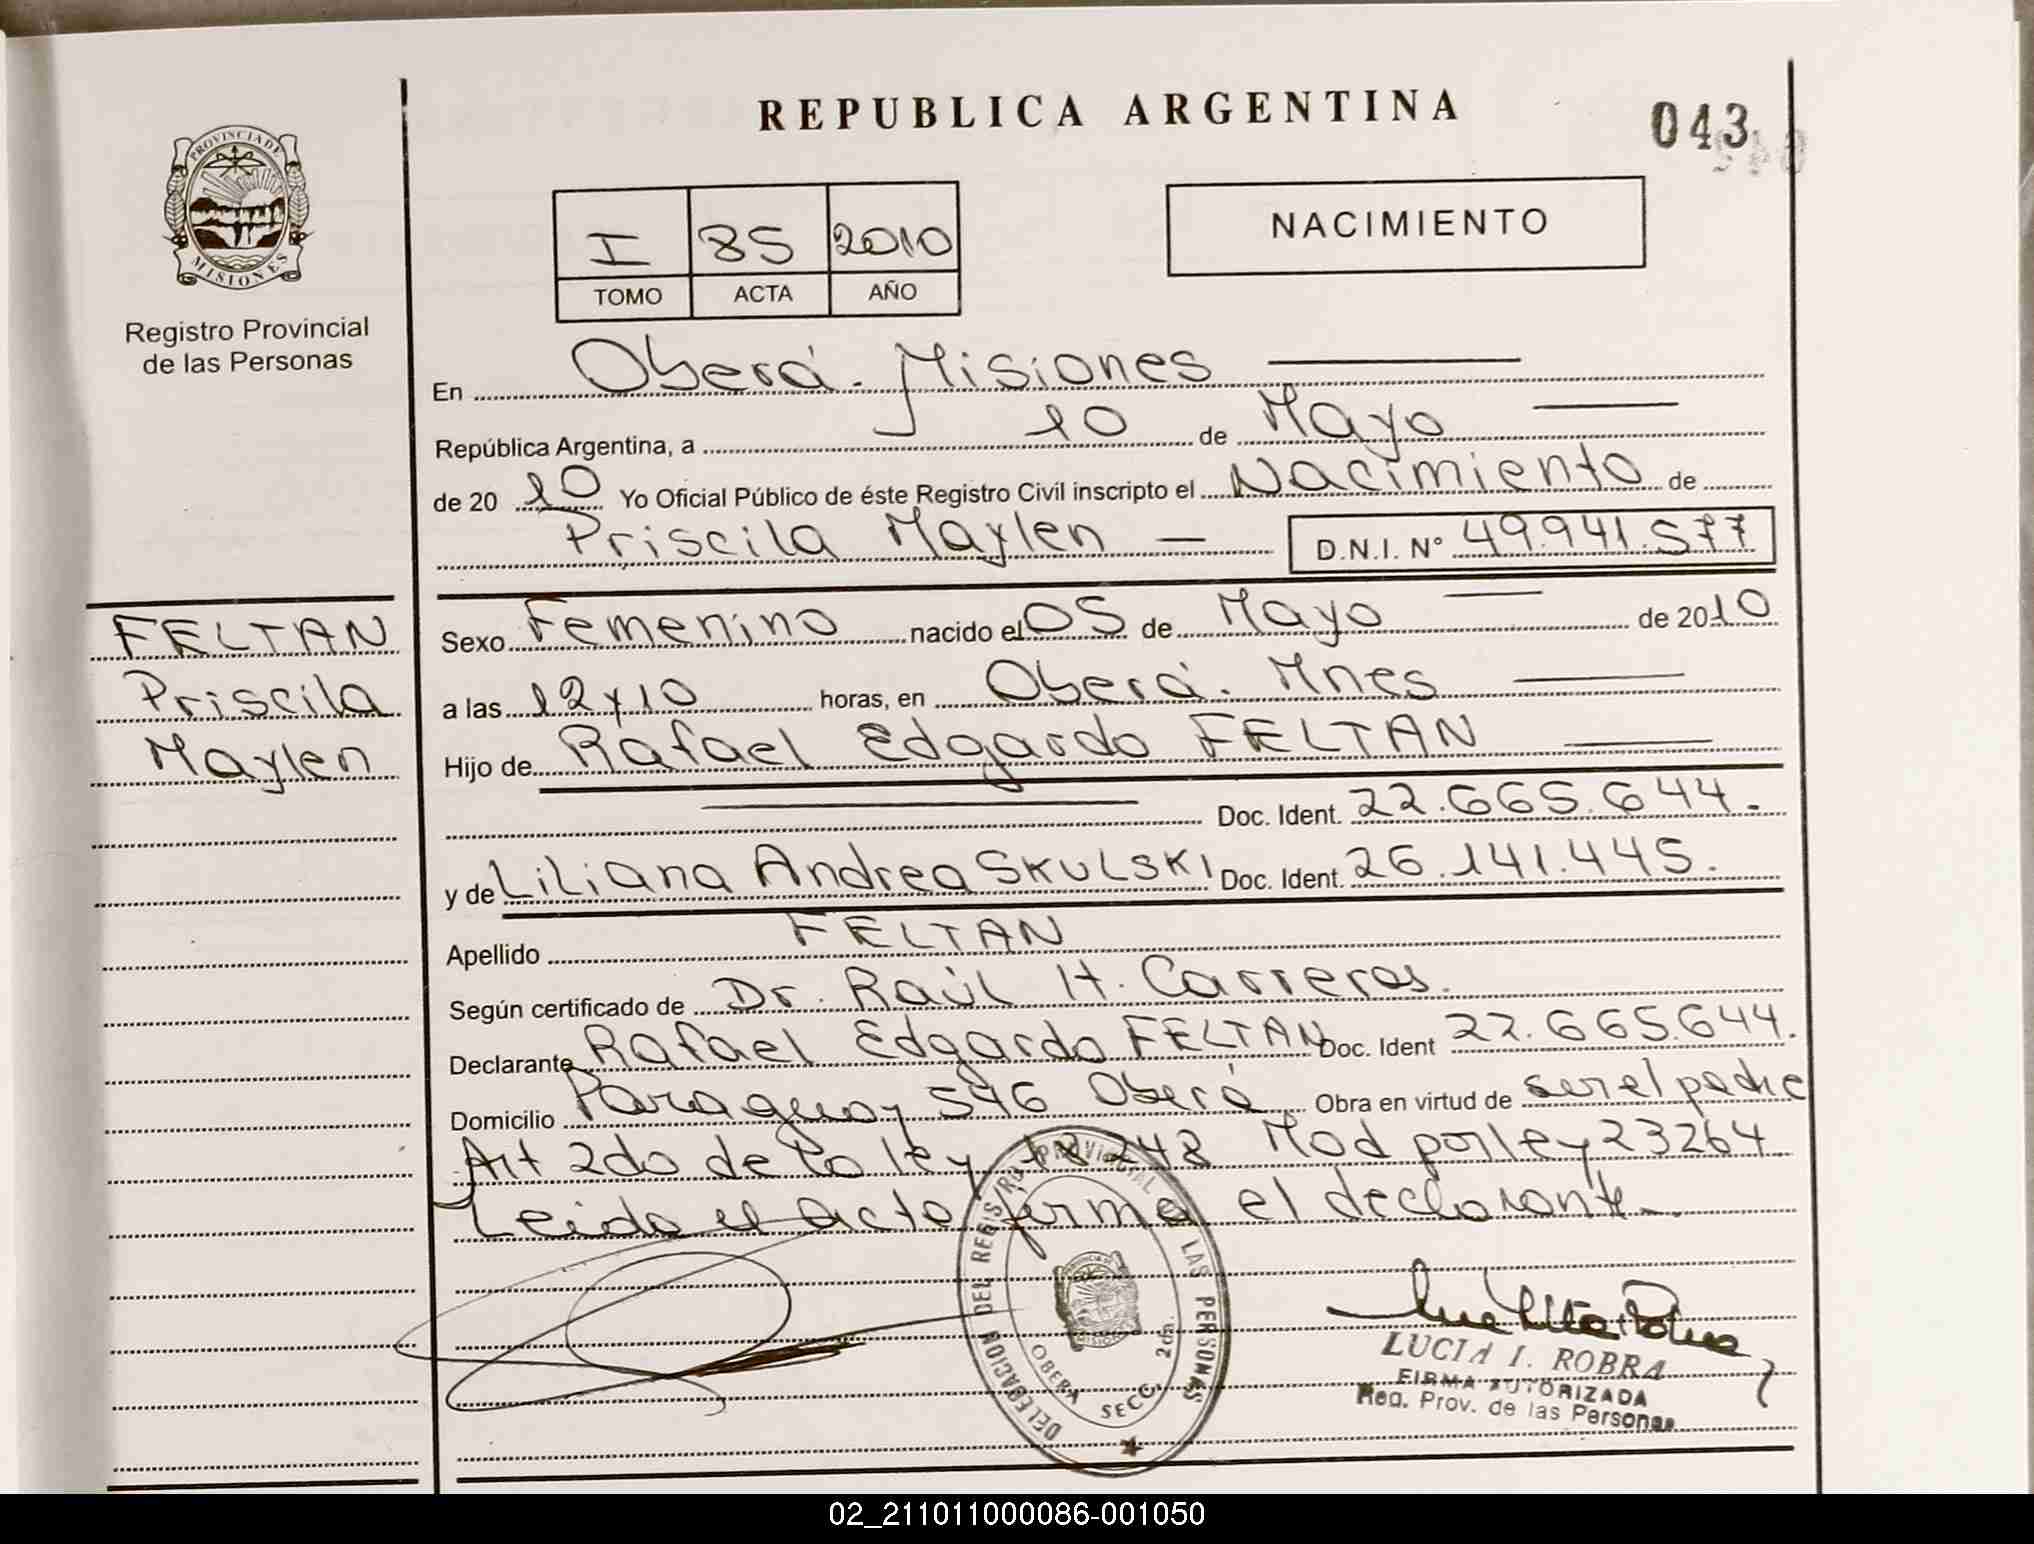 REPUBLICA ARGENTINA
043
PROVINCIA DE
MISIONES
Registro Provincial
de las Personas
I 85 2010
TOMO ACTA AÑO
NACIMIENTO
En Oberá. Misiones
República Argentina, a 10 de Mayo
de 20 10 Yo Oficial Público de éste Registro Civil inscripto el Nacimiento de
Priscila Maylen D.N.I. N° 49.941.577
FELTAN
Priscila
Maylen
Sexo Femenino nacido el 05 de Mayo de 2010
a las 12 y 10 horas, en Oberá. Mnes
Hijo de Rafael Edgardo FELTAN
Doc. Ident. 22.665.644.
y de Liliana Andrea SKULSKI Doc. Ident. 26.141.445.
Apellido FELTAN
Según certificado de Dr. Raúl H. Carreras.
Declarante Rafael Edgardo FELTAN Doc. Ident 22.665.644.
Domicilio Paraguay 546 Oberá Obra en virtud de ser el padre
Art 2do de la ley 18248 Mod por ley 23264
Leida el acta firma el declarante
DELEGACION DEL REGISTRO PROVINCIAL LAS PERSONAS
OBERA SECC. 2da.
LUCIA I. ROBRA
FIRMA AUTORIZADA
Reg. Prov. de las Personas
02_211011000086-001050